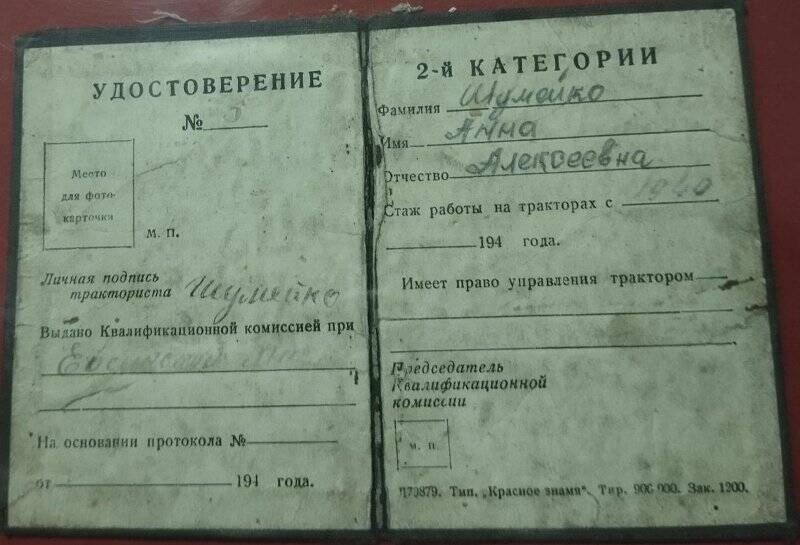 УДОСТОВЕРЕНИЕ
№ 5
Место
для фото-
карточки
М. П.
Личная подпись
тракториста Шумейко
Выдано Квалификационной комиссией при
На основании протокола №
от 194 года.
2-й КАТЕГОРИИ
Фамилия Шумейко
Имя Анна
Отчество Алексеевна
Стаж работы на тракторах с 1940
194 года.
Имеет право управления трактором
Председатель
Квалификационной
комиссии
М. П.
Тип. „Красное знамя“. Тир. 900 000. Зак. 1200.